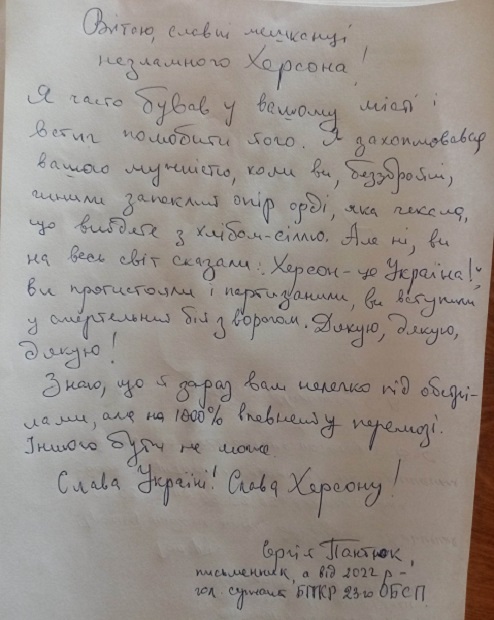 Вітаю, славні мешканці
незламного Херсона!
Я часто бував у вашому місті і
встиг полюбити його. Я захоплювався
вашою мужністю, коли ви, беззбройні,
чинили запеклий опір орді, яка чекала,
що вийдете з хлібом-сіллю. Але ні, ви
на весь світ сказали: Херсон - це Україна!,
ви протистояли і партизанили, ви вступили
у смертельний бій з ворогом. Дякую, дякую,
дякую!
Знаю, що й зараз вам нелегко під обстрі-
лами, але на 1000% впевнений у перемозі.
Іншого бути не може.
Слава Україні! Слава Херсону!
Сергій Пантюк,
письменник, а від 2022 р -
гол. сержант БТКР 23-го ОБСП